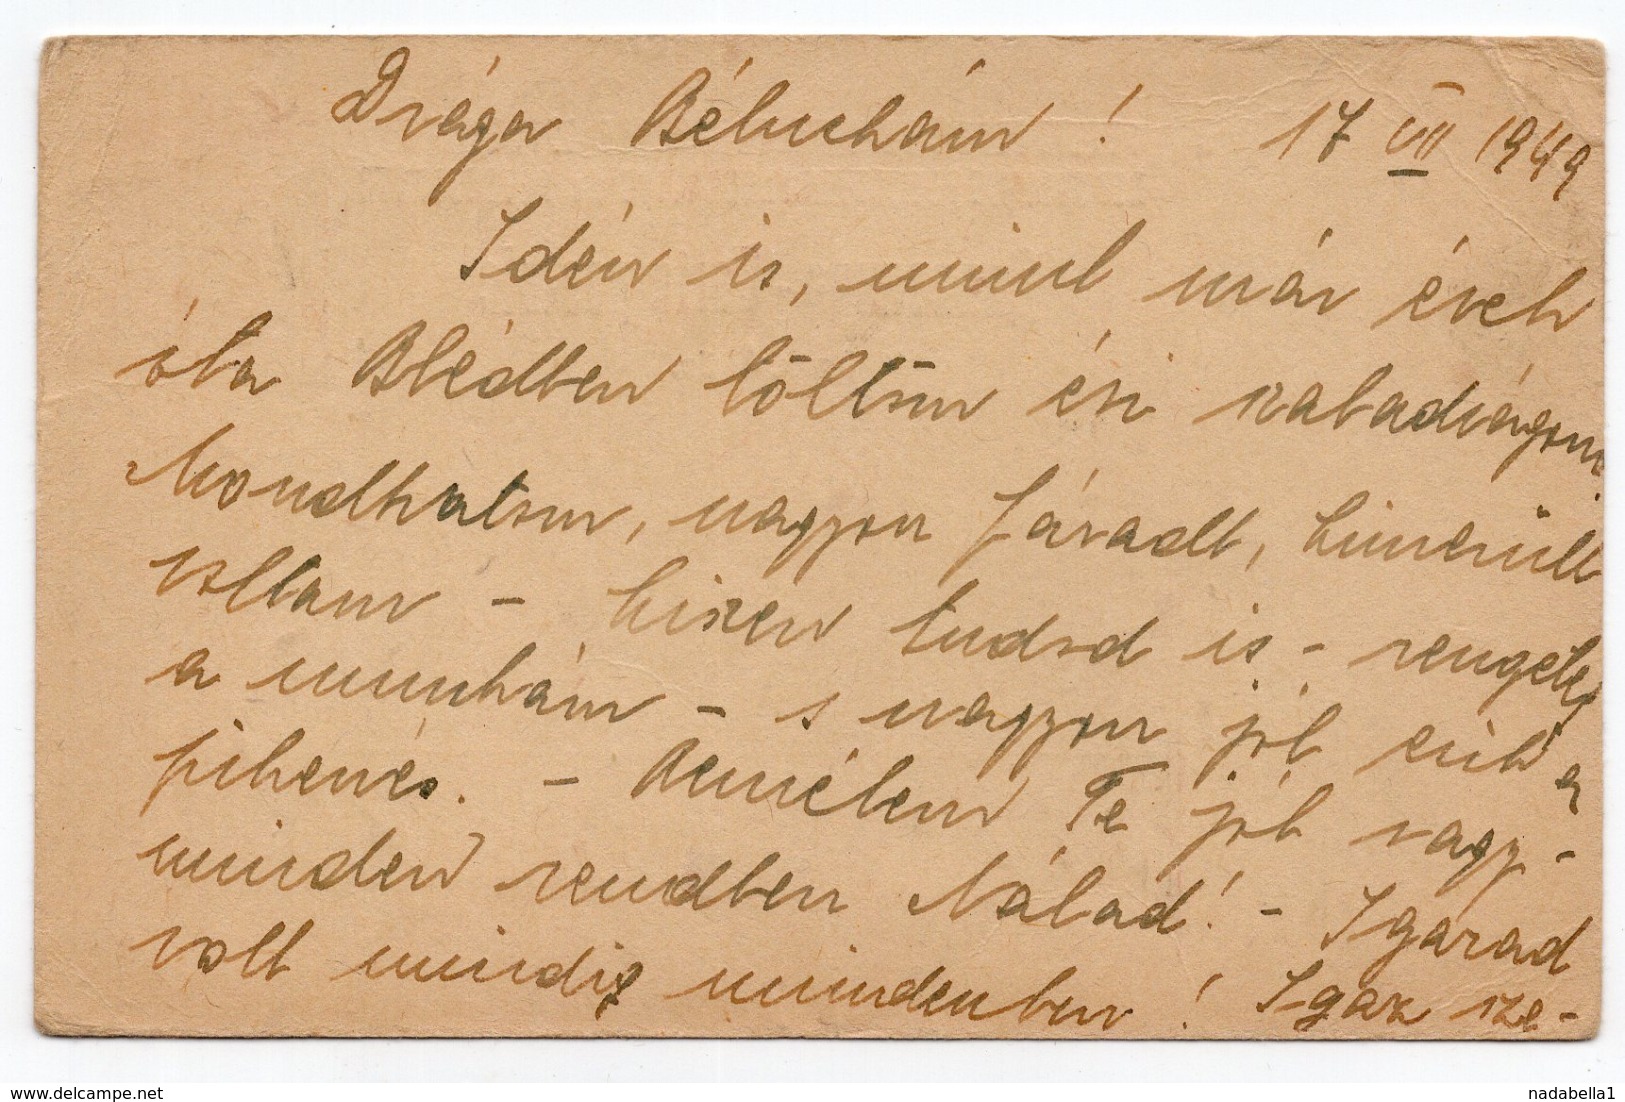 Drága Béluskám! 17 VII 1949
Idén is, mint már évek
óta Blédben töltöm évi szabadságom.
Mondhatom, nagyon fáradt, kimerült
voltam - hiszen tudod is - rengeteg
a munkám - s nagyon jól esik a
pihenés. - Remélem Te jól vagy -
minden rendben Nálad! - Igazad
volt mindig mindenben! Igaz sze-
www.delcampe.net
nadabella1